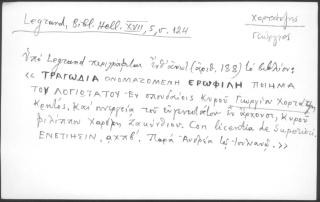 Legrand, Bibl. Hell. XVII, 5, σ. 124
Χορτάτσης
Γεώργιος
Ὑπὸ Legrand περιγράφεται ἐνθ' ἀνω (ἀριθ. 188) τὸ βιβλίον:
« ΤΡΑΓΩΔΙΑ ΟΝΟΜΑΖΟΜΕΝΗ ΕΡΩΦΙΛΗ ΠΟΙΗΜΑ
ΤΟΥ ΛΟΓΙΩΤΑΤΟΥ Ἐν σπουδαίοις Κυροῦ Γεωργίου Χορτάτζη
Κρητός, Καὶ συνεργεία τοῦ εὐγενεστάτου ἐν ἄρχουσι, Κυροῦ
Φιλίππου Χαρέρη Ζακυνθίου. Con licentia de Superiori.
ΕΝΕΤΙΗΣΙΝ. αχπβ΄. Παρὰ Ἀνδρέα τῷ Ἰουλιανῷ. »